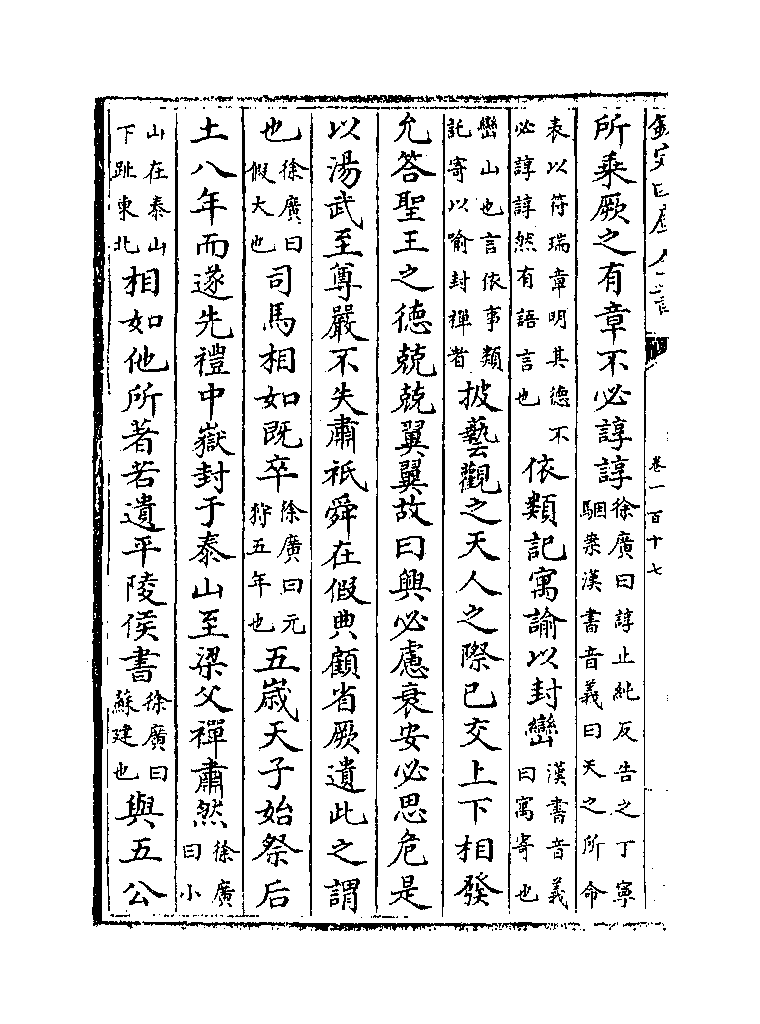 欽定四庫全書 卷一百十七
所乘厥之有章不必諄諄徐廣曰諄止純反告之丁寧駰案漢書音義曰天之所命
表以符瑞章明其德不必諄諄然有語言也依類記寓諭以封巒漢書音義曰寓寄也
巒山也言依事類託寄以喻封禪者披藝觀之天人之際已交上下相發
允答聖王之德兢兢翼翼故曰興必慮衰安必思危是
以湯武至尊嚴不失肅祇舜在假典顧省厥遺此之謂
也徐廣曰假大也司馬相如既卒徐廣曰元狩五年也五歲天子始祭后
土八年而遂先禮中嶽封于泰山至梁父禪肅然徐廣曰小
山在泰山下趾東北相如他所著若遺平陵侯書徐廣曰蘇建也與五公